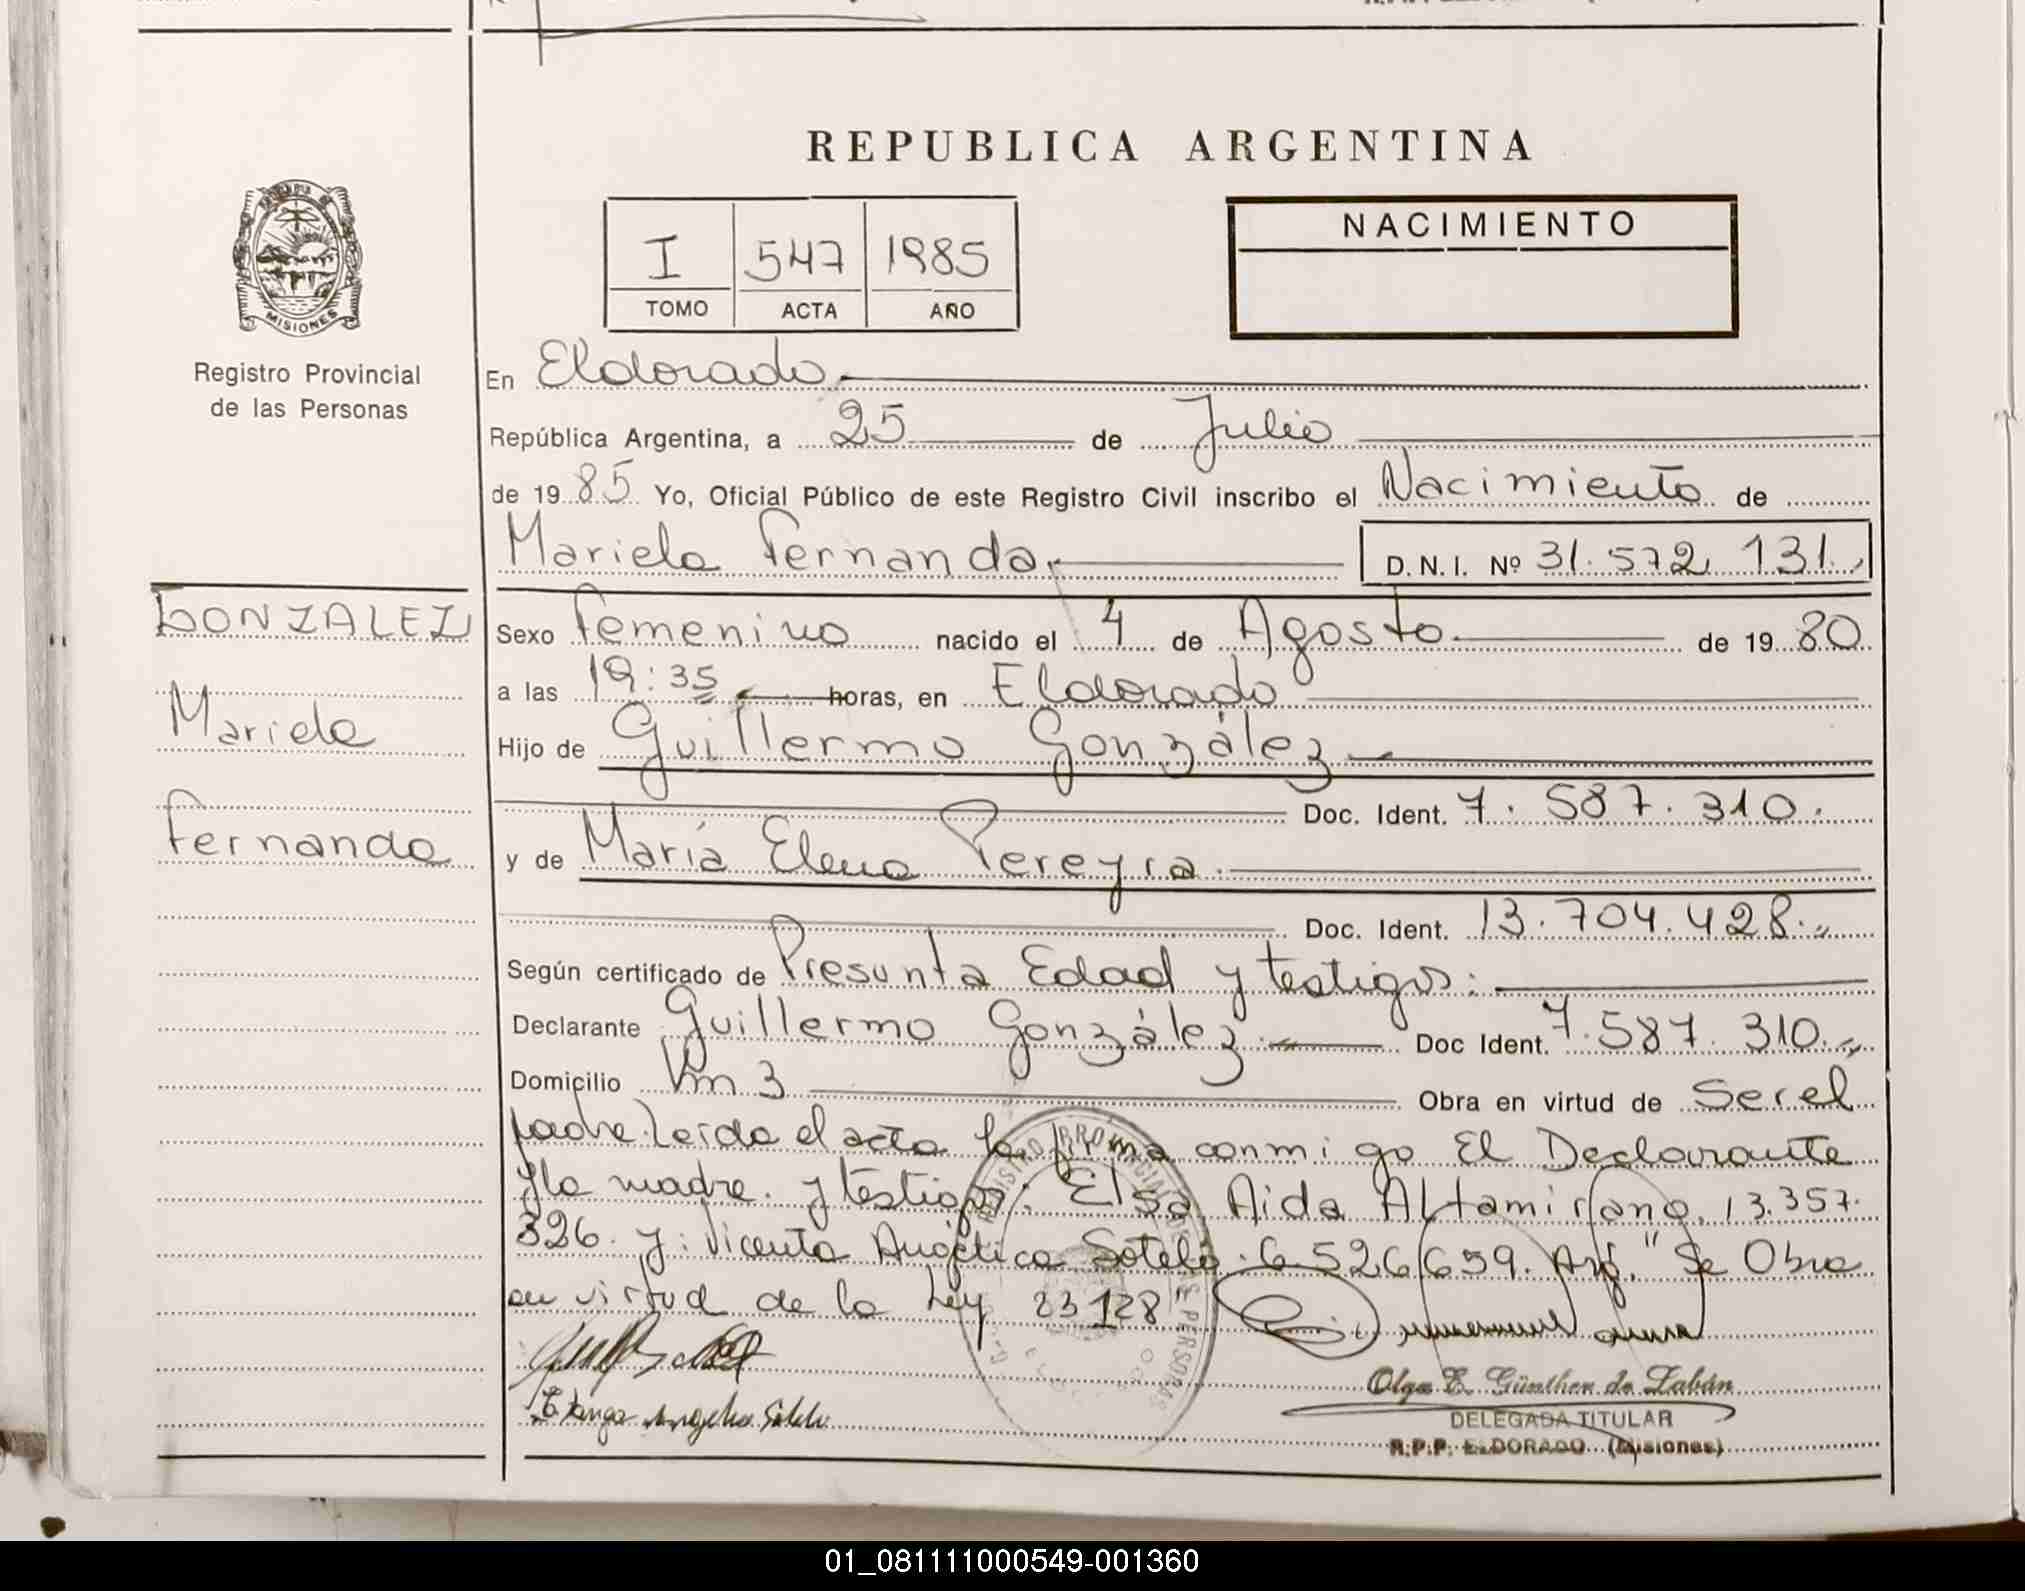 REPUBLICA ARGENTINA
I 547 1985
TOMO ACTA AÑO
NACIMIENTO
MISIONES
Registro Provincial
de las Personas
GONZALEZ
Mariela
Fernanda
En Eldorado
República Argentina, a 25 de Julio
de 1985 Yo, Oficial Público de este Registro Civil inscribo el Nacimiento de
Mariela Fernanda. D.N.I. Nº 31.572.131.
Sexo Femenino nacido el 4 de Agosto de 1980
a las 19:35 horas, en Eldorado
Hijo de Guillermo González
Doc. Ident. 7.587.310.
y de María Elena Pereyra.
Doc. Ident. 13.704.428.
Según certificado de Presunta Edad y testigos:
Declarante Guillermo González Doc Ident. 7.587.310.
Domicilio Km 3 Obra en virtud de Ser el
padre. Leída el acta la firma conmigo El Declarante
y la madre. y testigos: Elsa Aida Altamirano. 13.357.
326. y: Vicenta Angélica Sotelo. 6.526.659. Arg. "Se Obra
en virtud de la Ley 23128"
Olga E. Günther de Zabán
DELEGADA TITULAR
R.P.P. ELDORADO (Misiones)
01_081111000549-001360